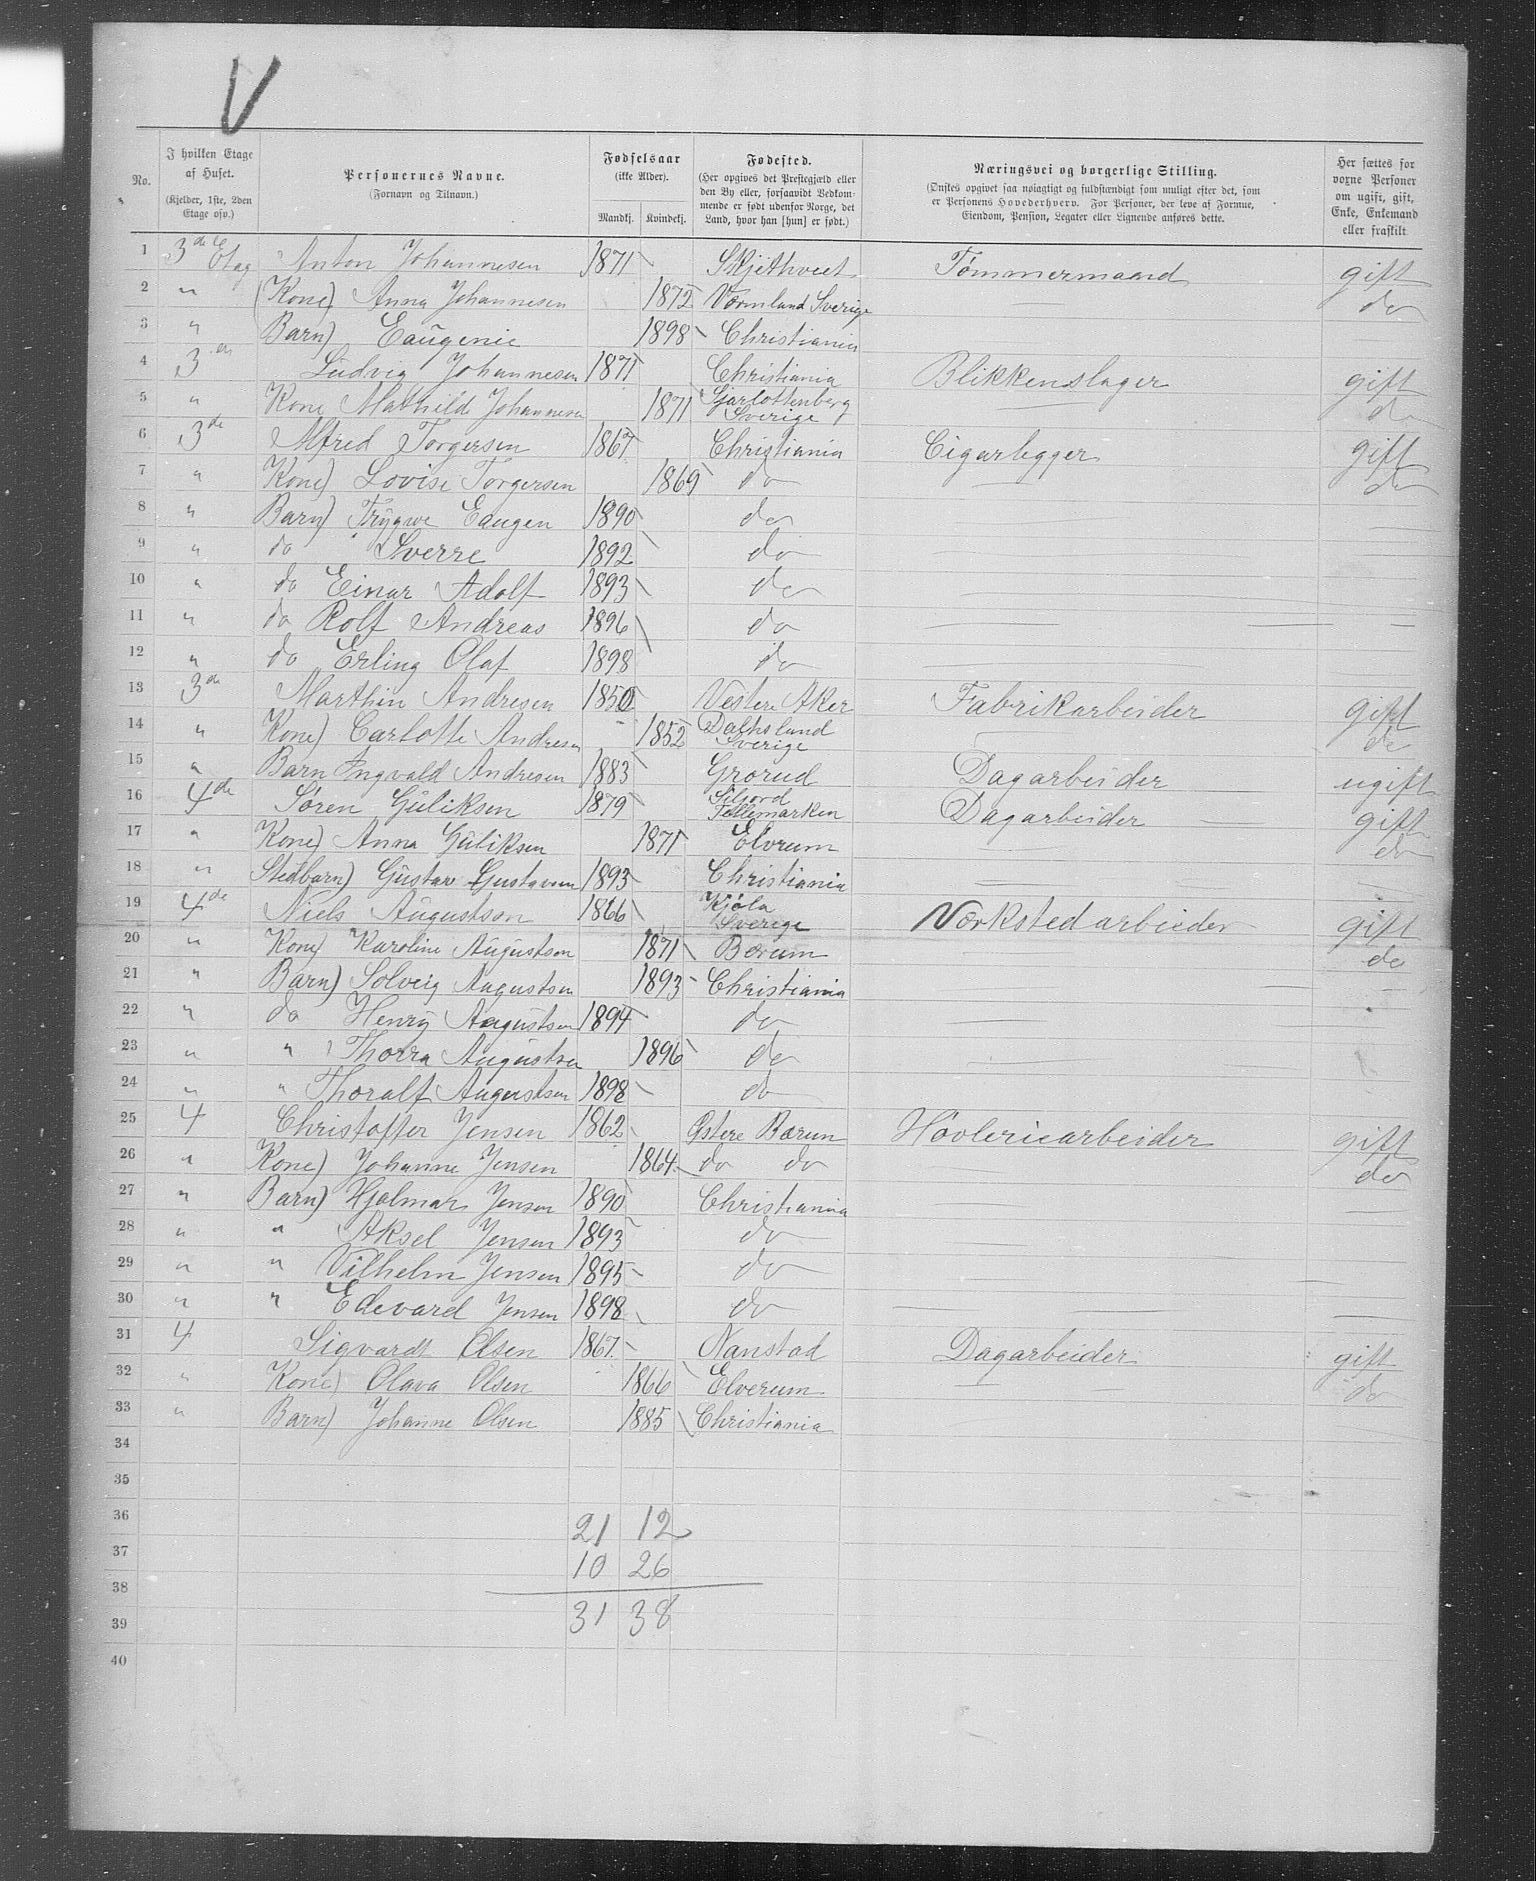 V
No.
I hvilken Etage af Huset.
(Kjelder, 1ste, 2den Etage osv.)
Personernes Navne.
(Fornavn og Tilnavn.)
Fødselsaar
(ikke Alder).
Mandkj. Kvindekj.
Fødested.
(Her opgives det Prestegjæld eller den By eller, forsaavidt Vedkommende er født udenfor Norge, det Land, hvor han [hun] er født.)
Næringsvei og borgerlige Stilling.
(Ønskes opgivet saa nøiagtigt og fuldstændigt som muligt efter det, som er Personens Hovederhverv. For Personer, der leve af Formue, Eiendom, Pension, Legater eller Lignende anføres dette.
Her sættes for voxne Personer om ugift, gift, Enke, Enkemand eller fraskilt
1 3de Etag Anton Johannesen 1871 Skjethveet Tømmermaand gift
2 " (Kone) Anna Johannesen 1872 Værmland Sverige do
3 " Barn) Eaugenie 1898 Christiania
4 3de Ludvig Johannesen 1871 Christiania Blikkenslager gift
5 " Kone Mathild Johannesen 1871 Sjarlottenberg Sverige do
6 3de Alfred Torgersen 1867 Christiania Cigarlegger gift
7 " Kone) Lovise Torgersen 1869 do do
8 " Barn) Trygwe Eaugen 1890 do
9 " do Sverre 1892 do
10 " do Einar Adolf 1893 do
11 " do Rolf Andreas 1896 do
12 " do Erling Olaf 1898 do
13 3de Marthin Andresen 1850 Vestere Aker Fabrikarbeider gift
14 " Kone) Carlotte Andresen 1852 Dalhsland Sverige do
15 " Barn Ingvald Andresen 1883 Grorud Dagarbeider ugift
16 4de Søren Guliksen 1879 Siljord Tellemarken Dagarbeider gift
17 " Kone) Anna Guliksen 1871 Elvrum do
18 " Stedbarn) Gustav Gustavsen 1893 Christiania
19 4de Niels Augustson 1866 Kjøla Sverige Værkstedarbeider gift
20 " Kone) Karoline Augustson 1871 Bærum do
21 " Barn) Solveig Augustsen 1893 Christiania
22 " do Henry Augustsen 1894 do
23 " " Thorra Augustsen 1896 do
24 " " Thoralf Augustsen 1898 do
25 4 Christoffer Jensen 1862 Østere Bærum Høvlericarbeider gift
26 " Kone) Johanne Jensen 1864 do do do
27 " Barn) Hjalmar Jensen 1890 Christiania
28 " " Aksel Jensen 1893 do
29 " " Vilhelm Jensen 1895 do
30 " " Edevard Jensen 1898 do
31 4 Sigvardt Olsen 1867 Nanstad Dagarbeider gift
32 " Kone) Olava Olsen 1866 Elverum do
33 " Barn) Johanne Olsen 1885 Christiania
34
35
36 21 12
37 10 26
38
39 31 38
40